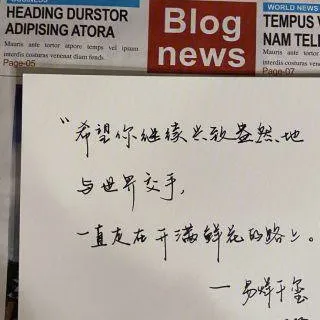 BUSINESS
HEADING DURSTOR
ADIPISING ATORA
Mauris ante tortor atpore temps vel ipsum
interdis costuras venenat diam fends
Page-05
Blog
news
WORLD NEWS
TEMPUS V
NAM TELI
Mauris ante tortor a
interdis costuras vene
Page-07
“希望你继续兴致盎然地
与世界交手，
一直走在开满鲜花的路上。
一易烊千玺